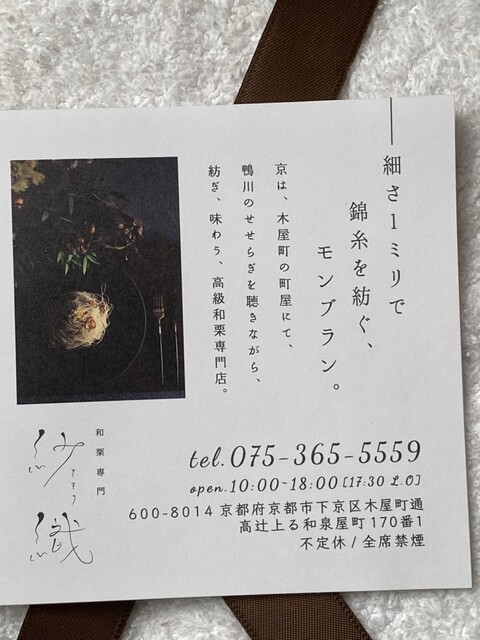 細さ1ミリで
錦糸を紡ぐ、
モンブラン。
京は、木屋町の町屋にて、
鴨川のせせらぎを聴きながら、
紡ぎ、味わう、高級和栗専門店。
和栗専門
紗織
さをり
tel.075-365-5559
open.10:00-18:00[17:30 L.O]
600-8014 京都府京都市下京区木屋町通
高辻上る和泉屋町170番1
不定休/全席禁煙